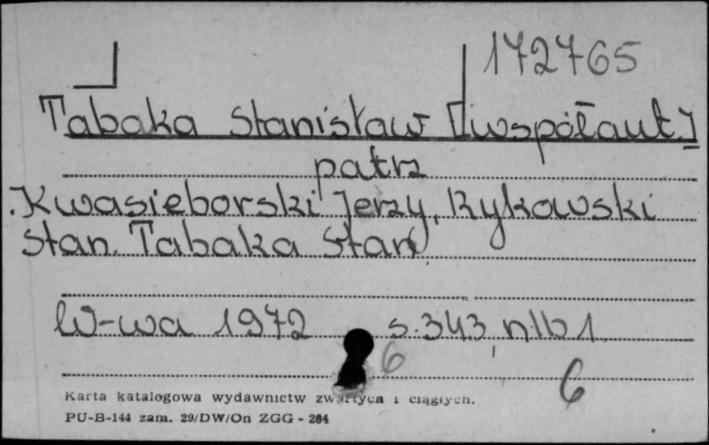 172765
Tabaka Stanisław [i współaut.]
patrz
Kwasieborski Jerzy, Rykowski
Stan. Tabaka Stan
W-wa 1972 s. 343, nlb 1.
6
6
Karta katalogowa wydawnictw zwartych i ciągłych.
PU-B-144 zam. 29/DW/On ZGG - 264